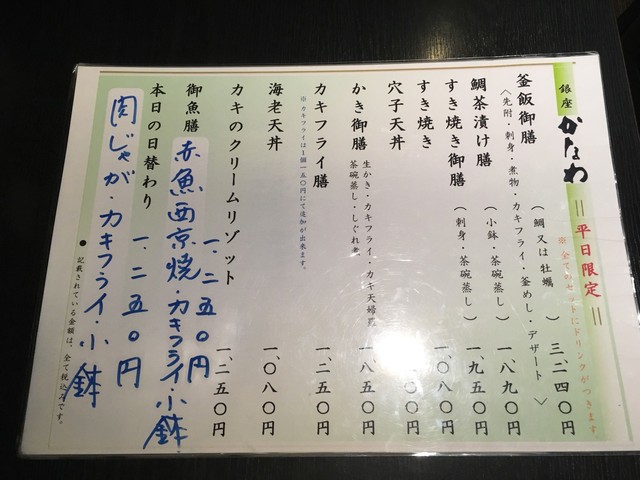 銀座 かなわ
|| 平日限定 ||
※ 全てのセットにドリンクがつきます
釜飯御膳 (鯛 又は 牡蠣) 三、二四〇円
〈先附・刺身・煮物・カキフライ・釜めし・デザート〉
鯛茶漬け膳 (小鉢・茶碗蒸し) 一、八九〇円
すき焼き御膳 (刺身・茶碗蒸し) 一、九五〇円
すき焼き 一、〇八〇円
穴子天丼
かき御膳 生かき・カキフライ・カキ天婦羅 一、八五〇円
茶碗蒸し・しぐれ煮
カキフライ膳 一、二五〇円
※ カキフライは1個一五〇円にて追加が出来ます。
海老天丼 一、〇八〇円
カキのクリームリゾット 一、二五〇円
御魚膳 一、二五〇円
赤魚西京焼・カキフライ・小鉢
本日の日替わり 一、二五〇円
肉じゃが・カキフライ・小鉢
● 記載されている金額は、全て税込みです。